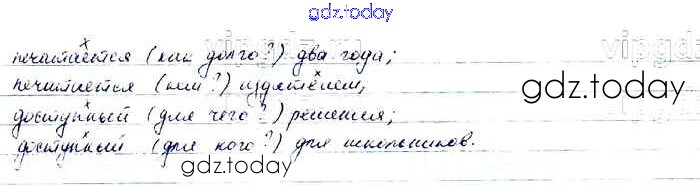 gdz.today
печатается (как долго?) два года;
печатается (кем?) издателем;
доступный (для чего?) решения;
доступный (для кого?) для школьников.
gdz.today
gdz.today